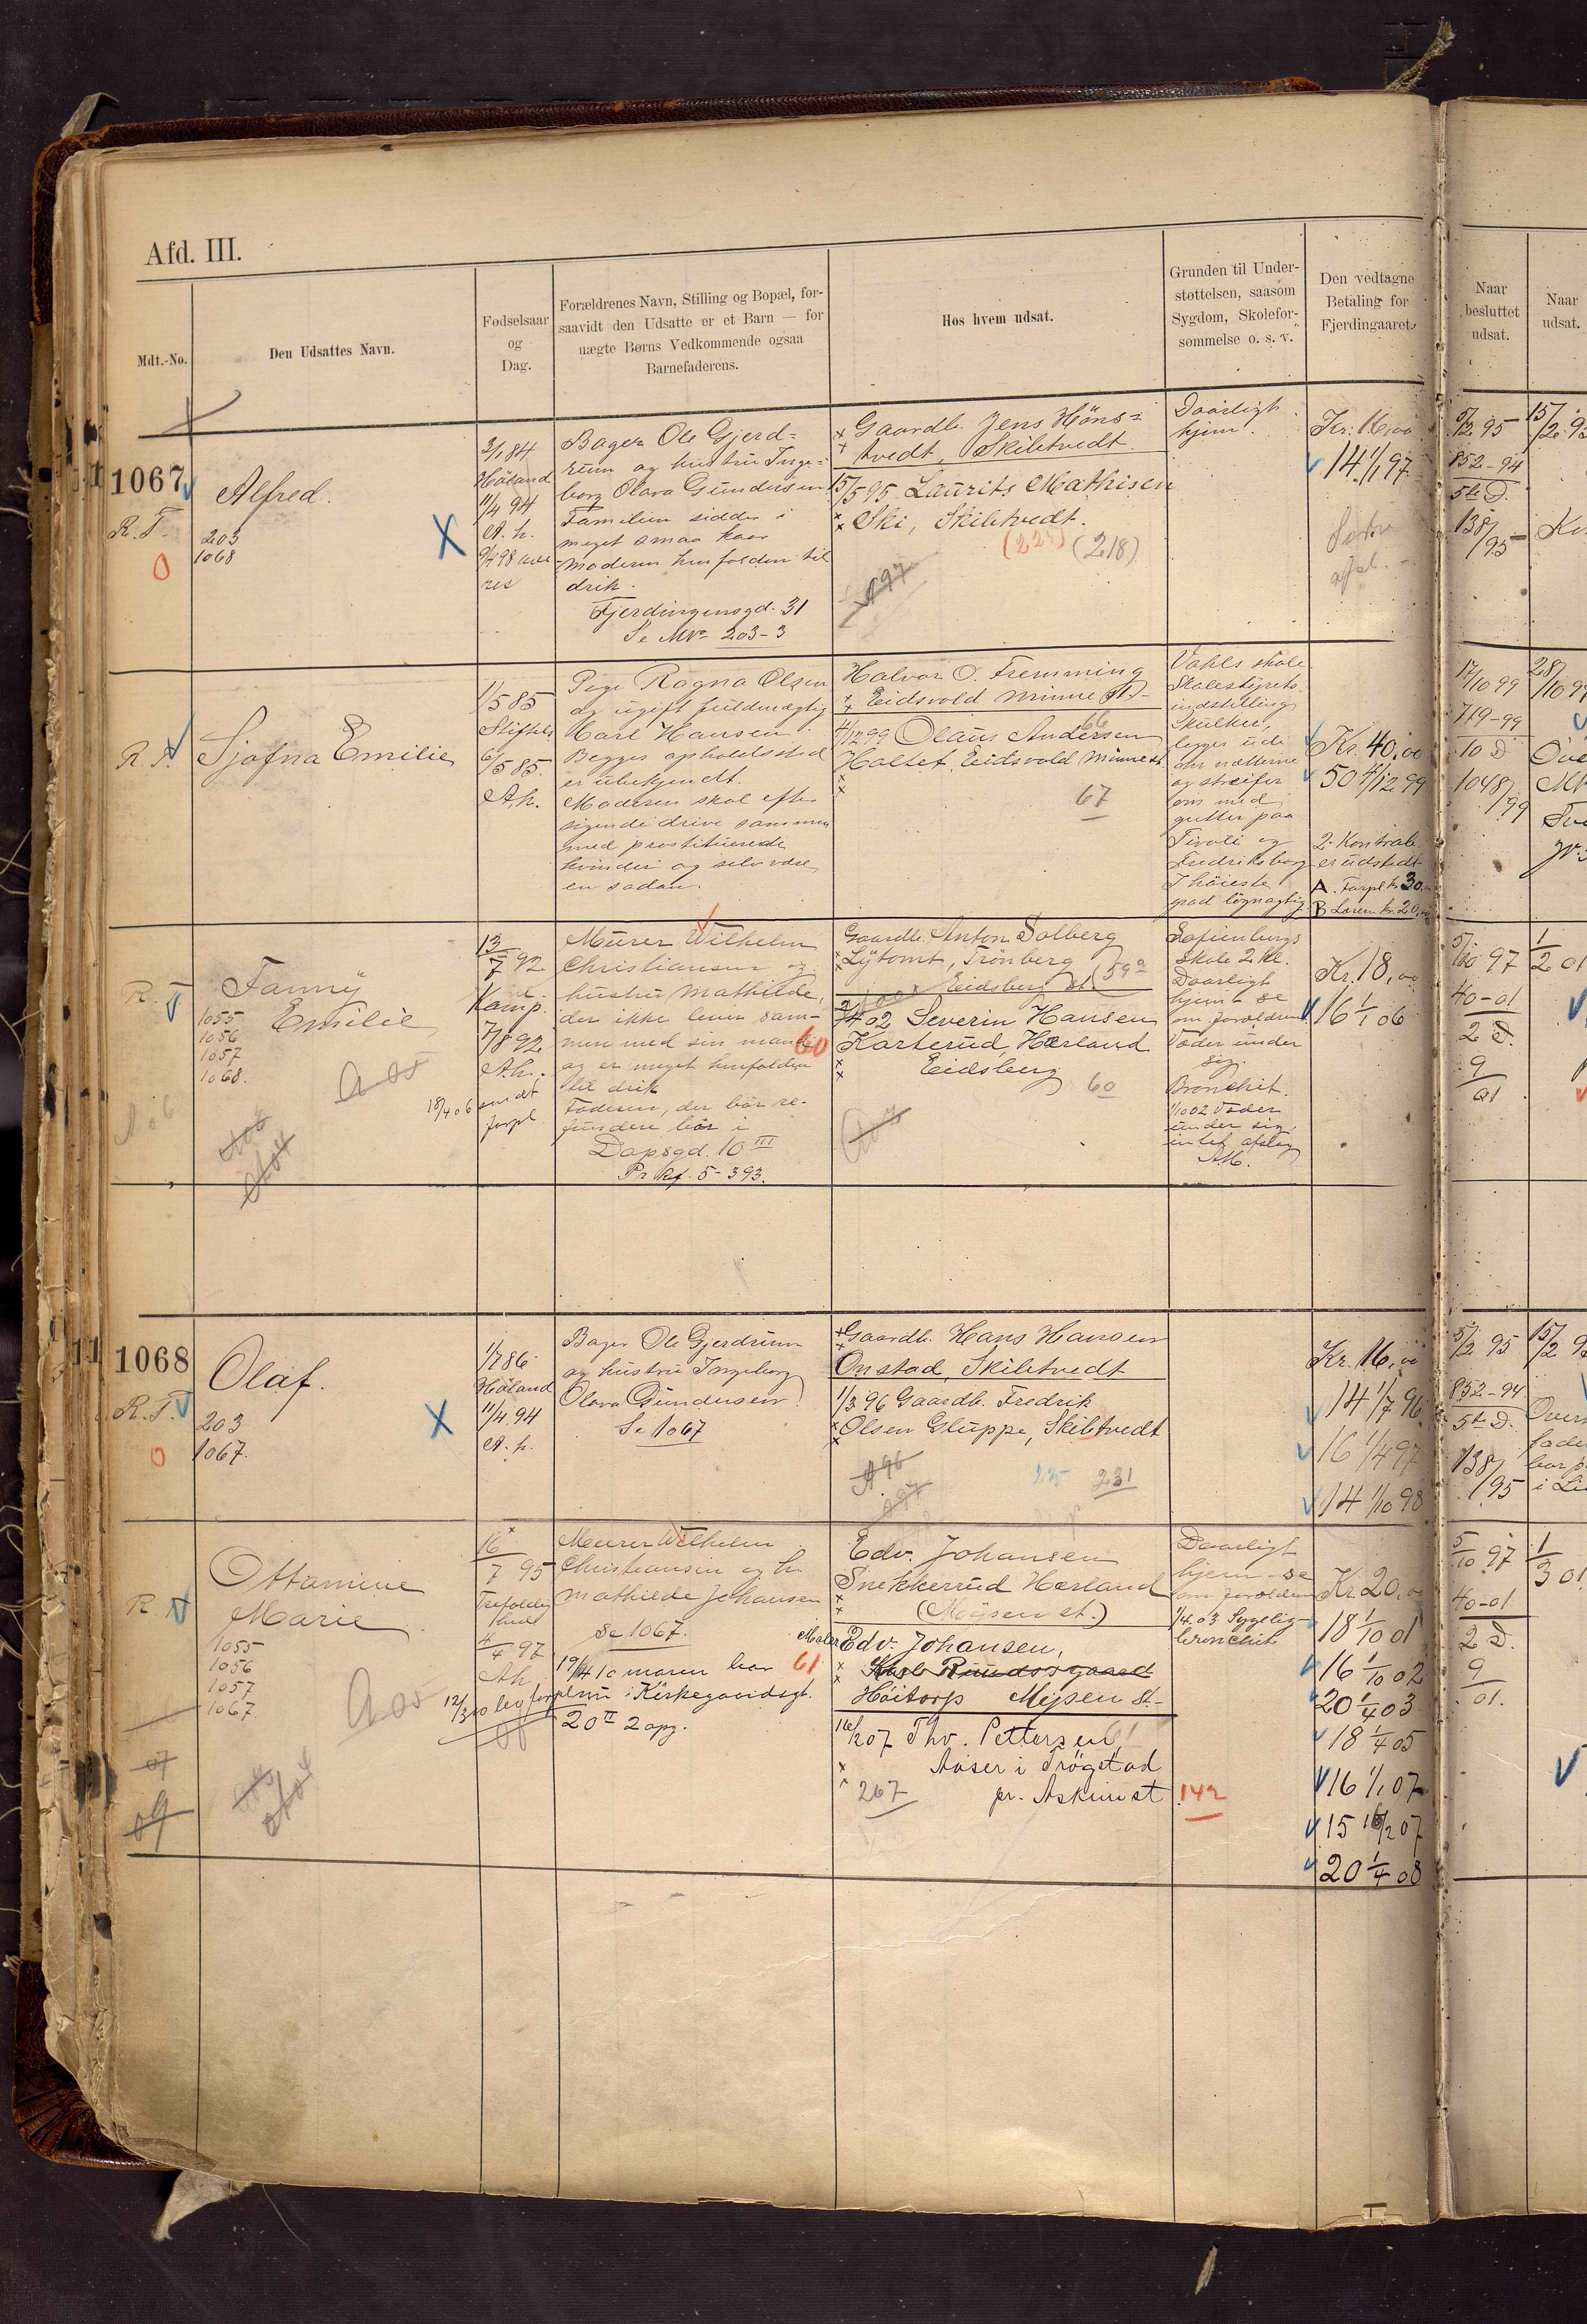 Afd. III.
Mdt.-No.
Den Udsattes Navn.
Fødselsaar
og
Dag.
Forældrenes Navn, Stilling og Bopæl, for-
saavidt den Udsatte er et Barn — for
uægte Børns Vedkommende ogsaa
Barnefaderens.
Hos hvem udsat.
Grunden til Under-
støttelsen, saasom
Sygdom, Skolefor-
sømmelse o. s. v.
Den vedtagne
Betaling for
Fjerdingaaret.
Naar
besluttet
udsat.
Naar
udsat.
1067
R. T.
0
Alfred.
203
1068
X
3/1 84
Höland
11/4 94
A. h.
Bager Ole Gjerd=
rum og hustru Inge=
borg Olava Gundersen
Familien sidder i
meget smaa kaar
moderen henfalden til
drik.
Fjerdingensgd. 31
Se Mno 203-3
Gaardb. Jens Höns=
tvedt, Skibtvedt
15/5 95 Laurits Mathisen
Ski, Skibtvedt.
(218)
A 97
Daarligt
hjem.
Kr. 16,00
14 1/1 97
5/2 95
852-94
5te D.
138/95
R. T.
Sjøfna Emilie
1/5 85
Stiftels.
6/5 85.
Ah.
Pige Ragna Olsen
og ugift fuldmægtig
Carl Hansen
Begges opholdssted
er ubekjendt.
Moderen skal efter
sigende drive sammen
med prostituerede
kvinder og selv være
en sadan.
Halvor O. Fremming
Eidsvold Minne St.-
4/12 99 Olaus Andersen
66
Holtet, Eidsvold Minne st
67
Vahls skole
Skolestyrets
indstilling
Skulker,
ligger ude
om nætterne
og streifer
om med
gutter paa
Tivoli og
Fredriksborg
I höieste
grad lögnagtig
Kr. 40,00
50 4/12 99
2 Kontrakt
er udstedt
A. Forpl. kr 30,00
B Lærem kr. 20,00
17/10 99
719-99
10 D
1048/99
28/10 99
R. T.
Fanny
Emilie
1055
1056
1057
1068.
A 05
13/7 92
Kamp.
7/8 92
Ah.
18/4 06 
forpl
Murer Wilhelm
Christiansen og
hustru Mathilde,
der ikke lever sam-
men med sin mand
60
og er meget henfalden
til drik
Faderen, der bör re-
fundere bor i
Dopsgd. 10 III
Pr Rf. 5-393.
Gaardb. Anton Solberg
Lytomt, Trönberg
Eidsberg st. (59a
2/4 02 Severin Hansen
Karterud, Hærland
Eidsberg
60
Sofienbergs
Skole 2 kl.
Daarligt
hjem - se
om forældrene
Væder under
sig.
Bronchit.
1/10 02 Væder
under sig,
intet afslag
AM.
Kr. 18,00
16 1/1 06
5/10 97
40-01
2 D.
9/01
1/2 01
1068
R. T.
0
Olaf.
203
1067.
X
1/7 86
Höland
11/4.94
A. h.
Bager Ole Gjerdrum
og hustru Ingeborg
Olava Gundersen
Se 1067
Gaardb. Hans Hansen
Onstad, Skibtvedt
1/3 96 Gaardb. Fredrik
Olsen Gluppe, Skibtvedt
A 96
231
Kr. 16,00
14 1/7 96
16 1/4 97
14 1/10 98
5/2 95
852-94
5te D.
138/95
R. T.
Ottamine
Marie
1055
1056
1057
1067
A 05
07
09
16/7 95
Trefoldig
hed
4/4 97
Ah
Murer Wilhelm
Christiansen og h.
Mathilde Johansen
Se 1067.
19/4 10 moren bor
nu i Kirkegaardsgt.
20 II 2 opg.
Edv. Johansen
Snekkerud Hærland
(Mysen st.)
Maler Edv. Johansen,
61
Höitorp Mysen St.-
16/2 07 Thv. Pettersen
Aaser i Trögstad
267 pr. Askim st
142
Daarligt
hjem - se
om forældrene
1/4 03 Sygelig
bronchit
Kr. 20,00
18 1/10 01
16 1/10 02
20 1/4 03
18 1/4 05
16 1/1 07
15 16/2 07
20 1/4 08
5/10 97
40-01
2 D.
9/01.
1/3 01